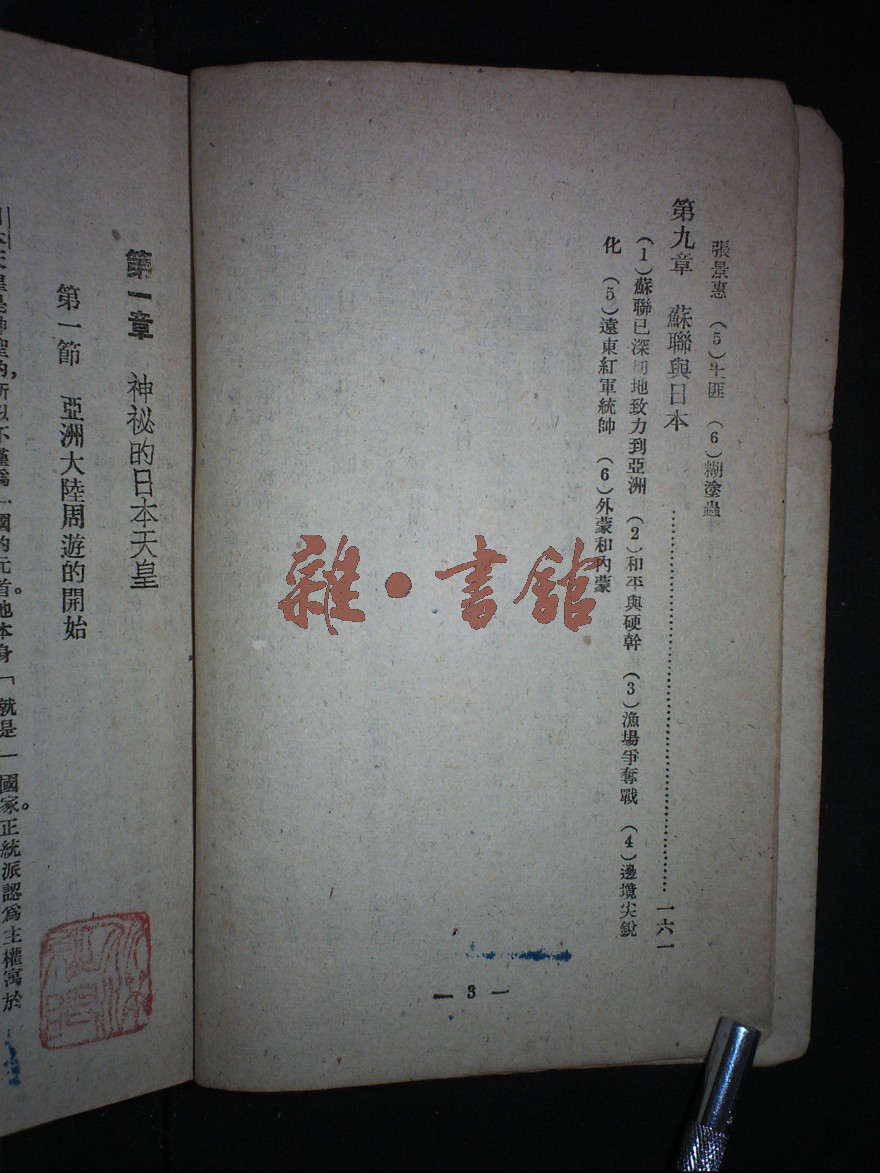 張景惠 (5)土匪 (6)糊塗蟲
第九章 蘇聯與日本……一六一
(1)蘇聯已深切地致力到亞洲 (2)和平與硬幹 (3)漁場爭奪戰 (4)邊境尖銳
化 (5)遠東紅軍統帥 (6)外蒙和內蒙
— 3 —
雜·書舘
第一章 神祕的日本天皇
第一節 亞洲大陸周遊的開始
日本天皇是神聖的,所以不僅為一國的元首。他本身「就是」國家。正統派認為主權寓於